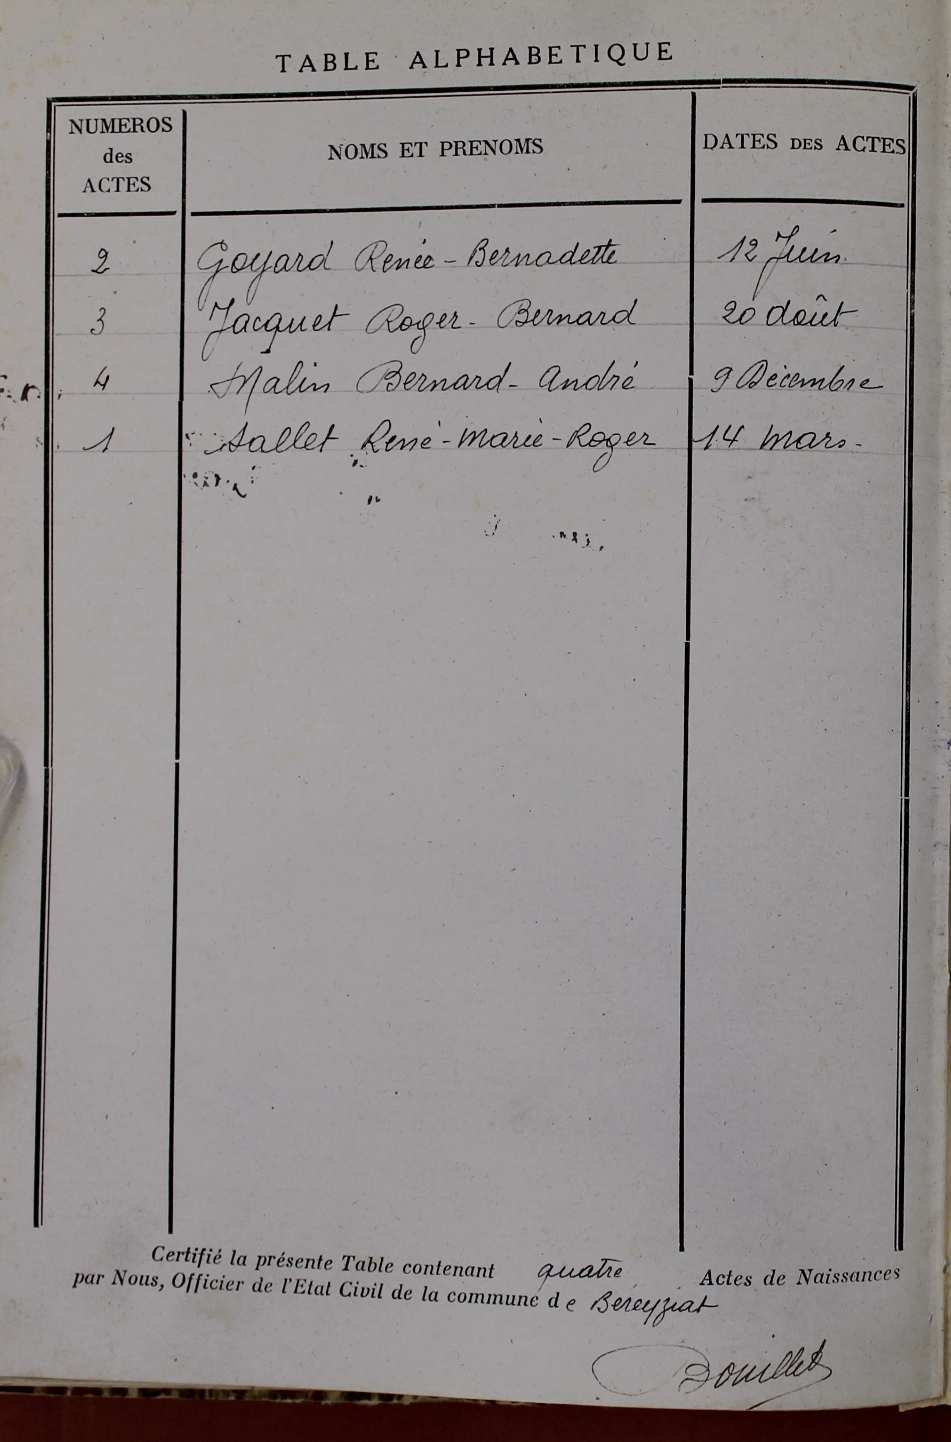 TABLE ALPHABETIQUE
NUMEROS des ACTES
NOMS ET PRENOMS
DATES DES ACTES
2 Goyard Renée - Bernadette 12 Juin.
3 Jacquet Roger - Bernard 20 Août
4 Malin Bernard - André 9 Décembre
1 Sallet René - Marie - Roger 14 Mars -
Certifié la présente Table contenant quatre Actes de Naissances
par Nous, Officier de l'Etat Civil de la commune de Bereyziat
Douillet